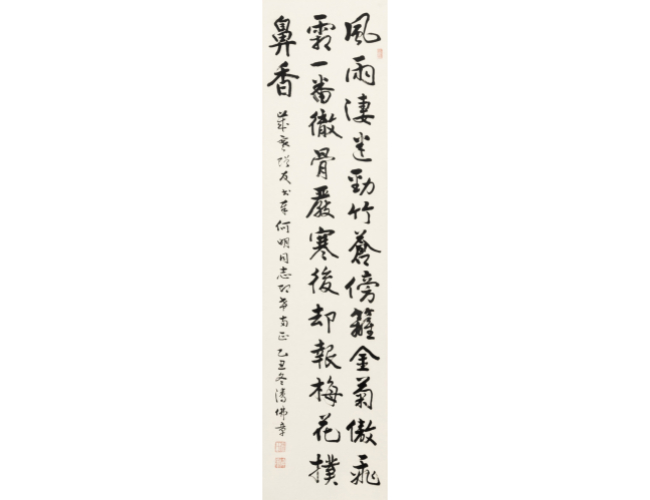 風雨淒迷勁竹蒼傍籬金菊傲飛
霜一番徹骨嚴寒後却報梅花撲
鼻香
歲寒 友 書奉何明同志 正 乙丑冬潘